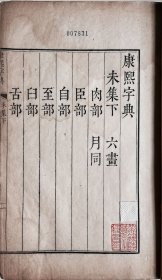 007831
康熙字典
未集下　六畫
肉部　月同
臣部
自部
至部
臼部
舌部